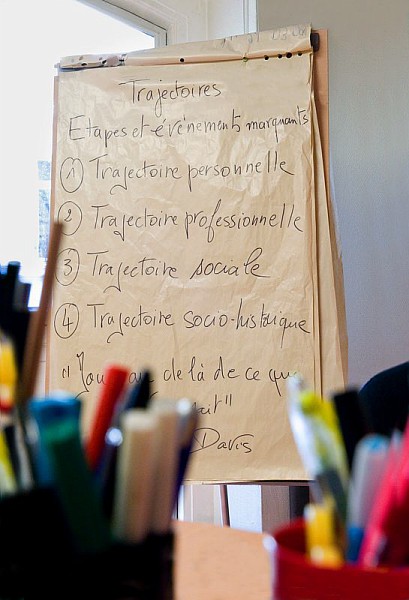 Trajectoires
Etapes et événements marquants
1 Trajectoire personnelle
2 Trajectoire professionnelle
3 Trajectoire sociale
4 Trajectoire socio-historique
de là de ce que
"
Davis